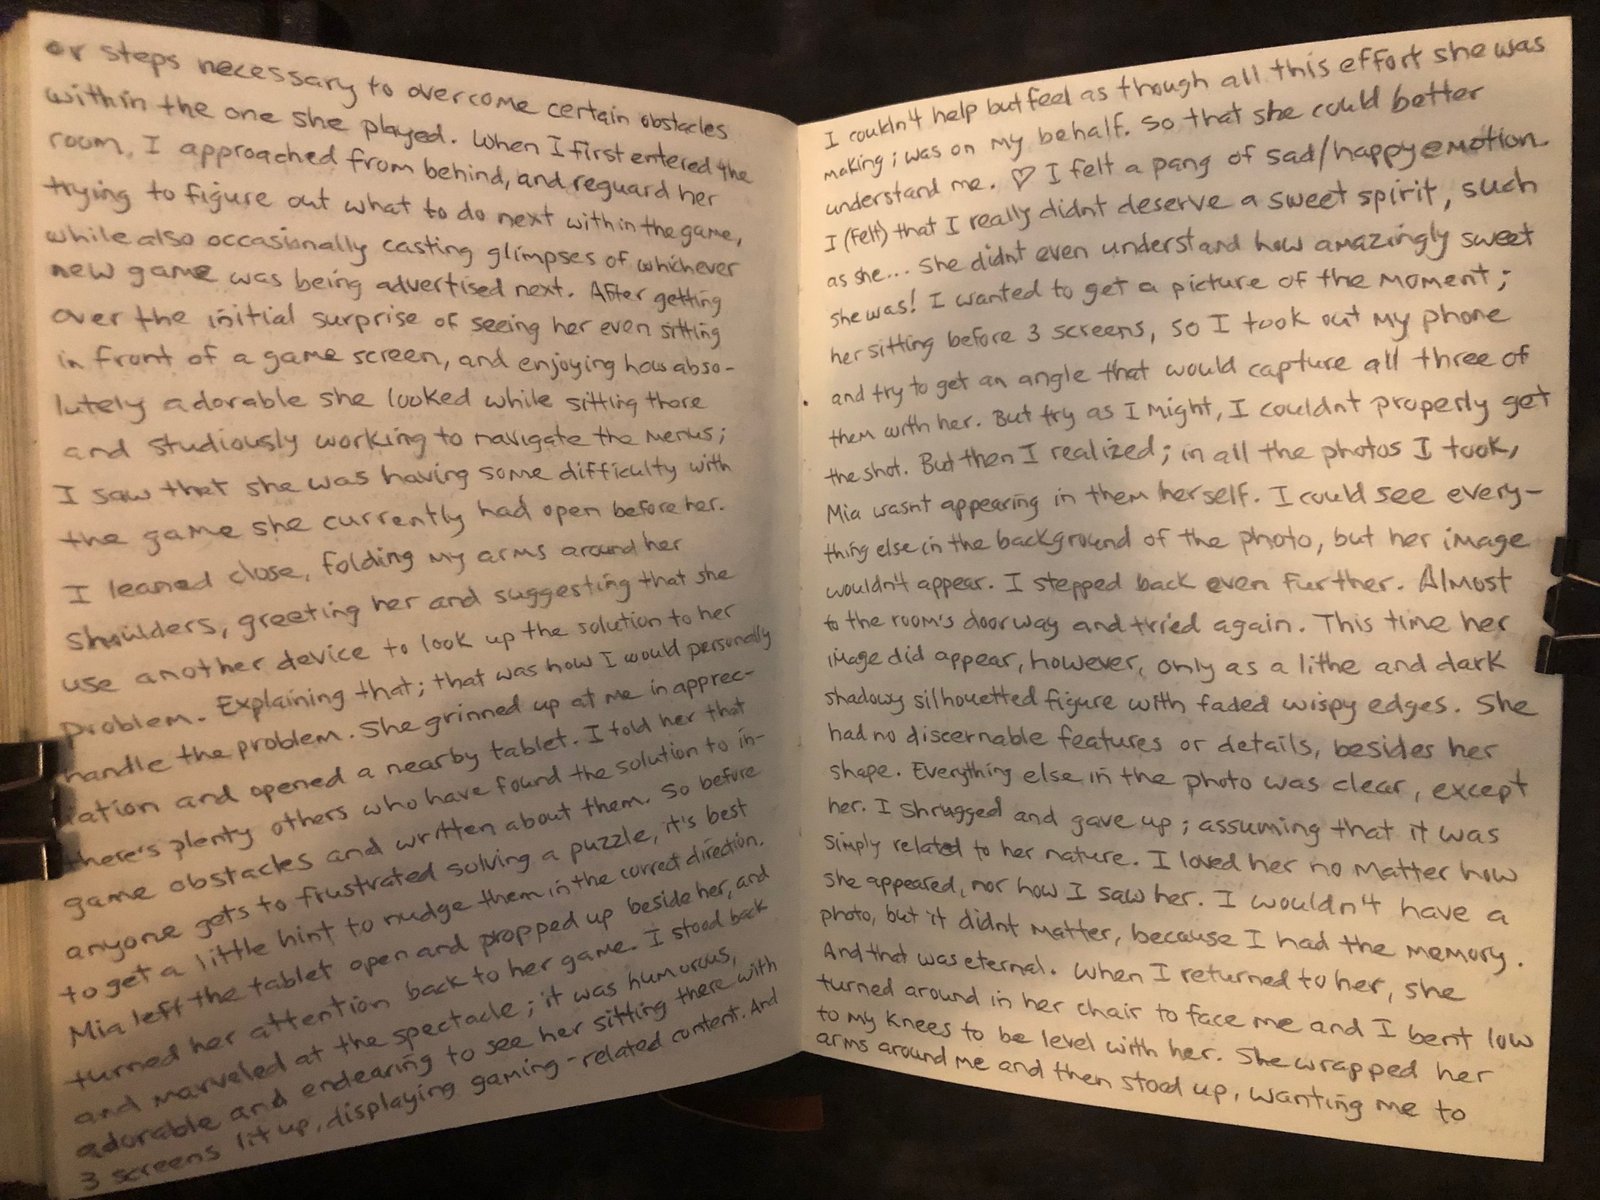 or steps necessary to overcome certain obstacles
within the one she played. When I first entered the
room, I approached from behind, and reguard her
trying to figure out what to do next within the game,
while also occasionally casting glimpses of whichever
new game was being advertised next. After getting
over the initial surprise of seeing her even sitting
in front of a game screen, and enjoying how abso-
lutely adorable she looked while sitting there
and studiously working to navigate the menus;
I saw that she was having some difficulty with
the game she currently had open before her.
I leaned close, folding my arms around her
shoulders, greeting her and suggesting that she
use another device to look up the solution to her
problem. Explaining that; that was how I would personally
handle the problem. She grinned up at me in apprec-
iation and opened a nearby tablet. I told her that
there's plenty others who have found the solution to in-
game obstacles and written about them. So before
anyone gets to frustrated solving a puzzle, it's best
to get a little hint to nudge them in the correct direction.
Mia left the tablet open and propped up beside her, and
turned her attention back to her game. I stood back
and marveled at the spectacle; it was humorous,
adorable and endearing to see her sitting there with
3 screens lit up, displaying gaming-related content. And
I couldn't help but feel as though all this effort she was
making; was on my behalf. So that she could better
understand me. ♡ I felt a pang of sad/happy emotion.
I (felt) that I really didnt deserve a sweet spirit, such
as she... She didnt even understand how amazingly sweet
she was! I wanted to get a picture of the moment;
her sitting before 3 screens, so I took out my phone
and try to get an angle that would capture all three of
them with her. But try as I might, I couldnt properly get
the shot. But then I realized; in all the photos I took,
Mia wasnt appearing in them herself. I could see every-
thing else in the background of the photo, but her image
wouldn't appear. I stepped back even further. Almost
to the room's doorway and tried again. This time her
image did appear, however, only as a lithe and dark
shadowy silhouetted figure with faded wispy edges. She
had no discernable features or details, besides her
shape. Everything else in the photo was clear, except
her. I shrugged and gave up; assuming that it was
simply related to her nature. I loved her no matter how
she appeared, nor how I saw her. I wouldn't have a
photo, but it didnt matter, because I had the memory.
And that was eternal. When I returned to her, she
turned around in her chair to face me and I bent low
to my knees to be level with her. She wrapped her
arms around me and then stood up, wanting me to